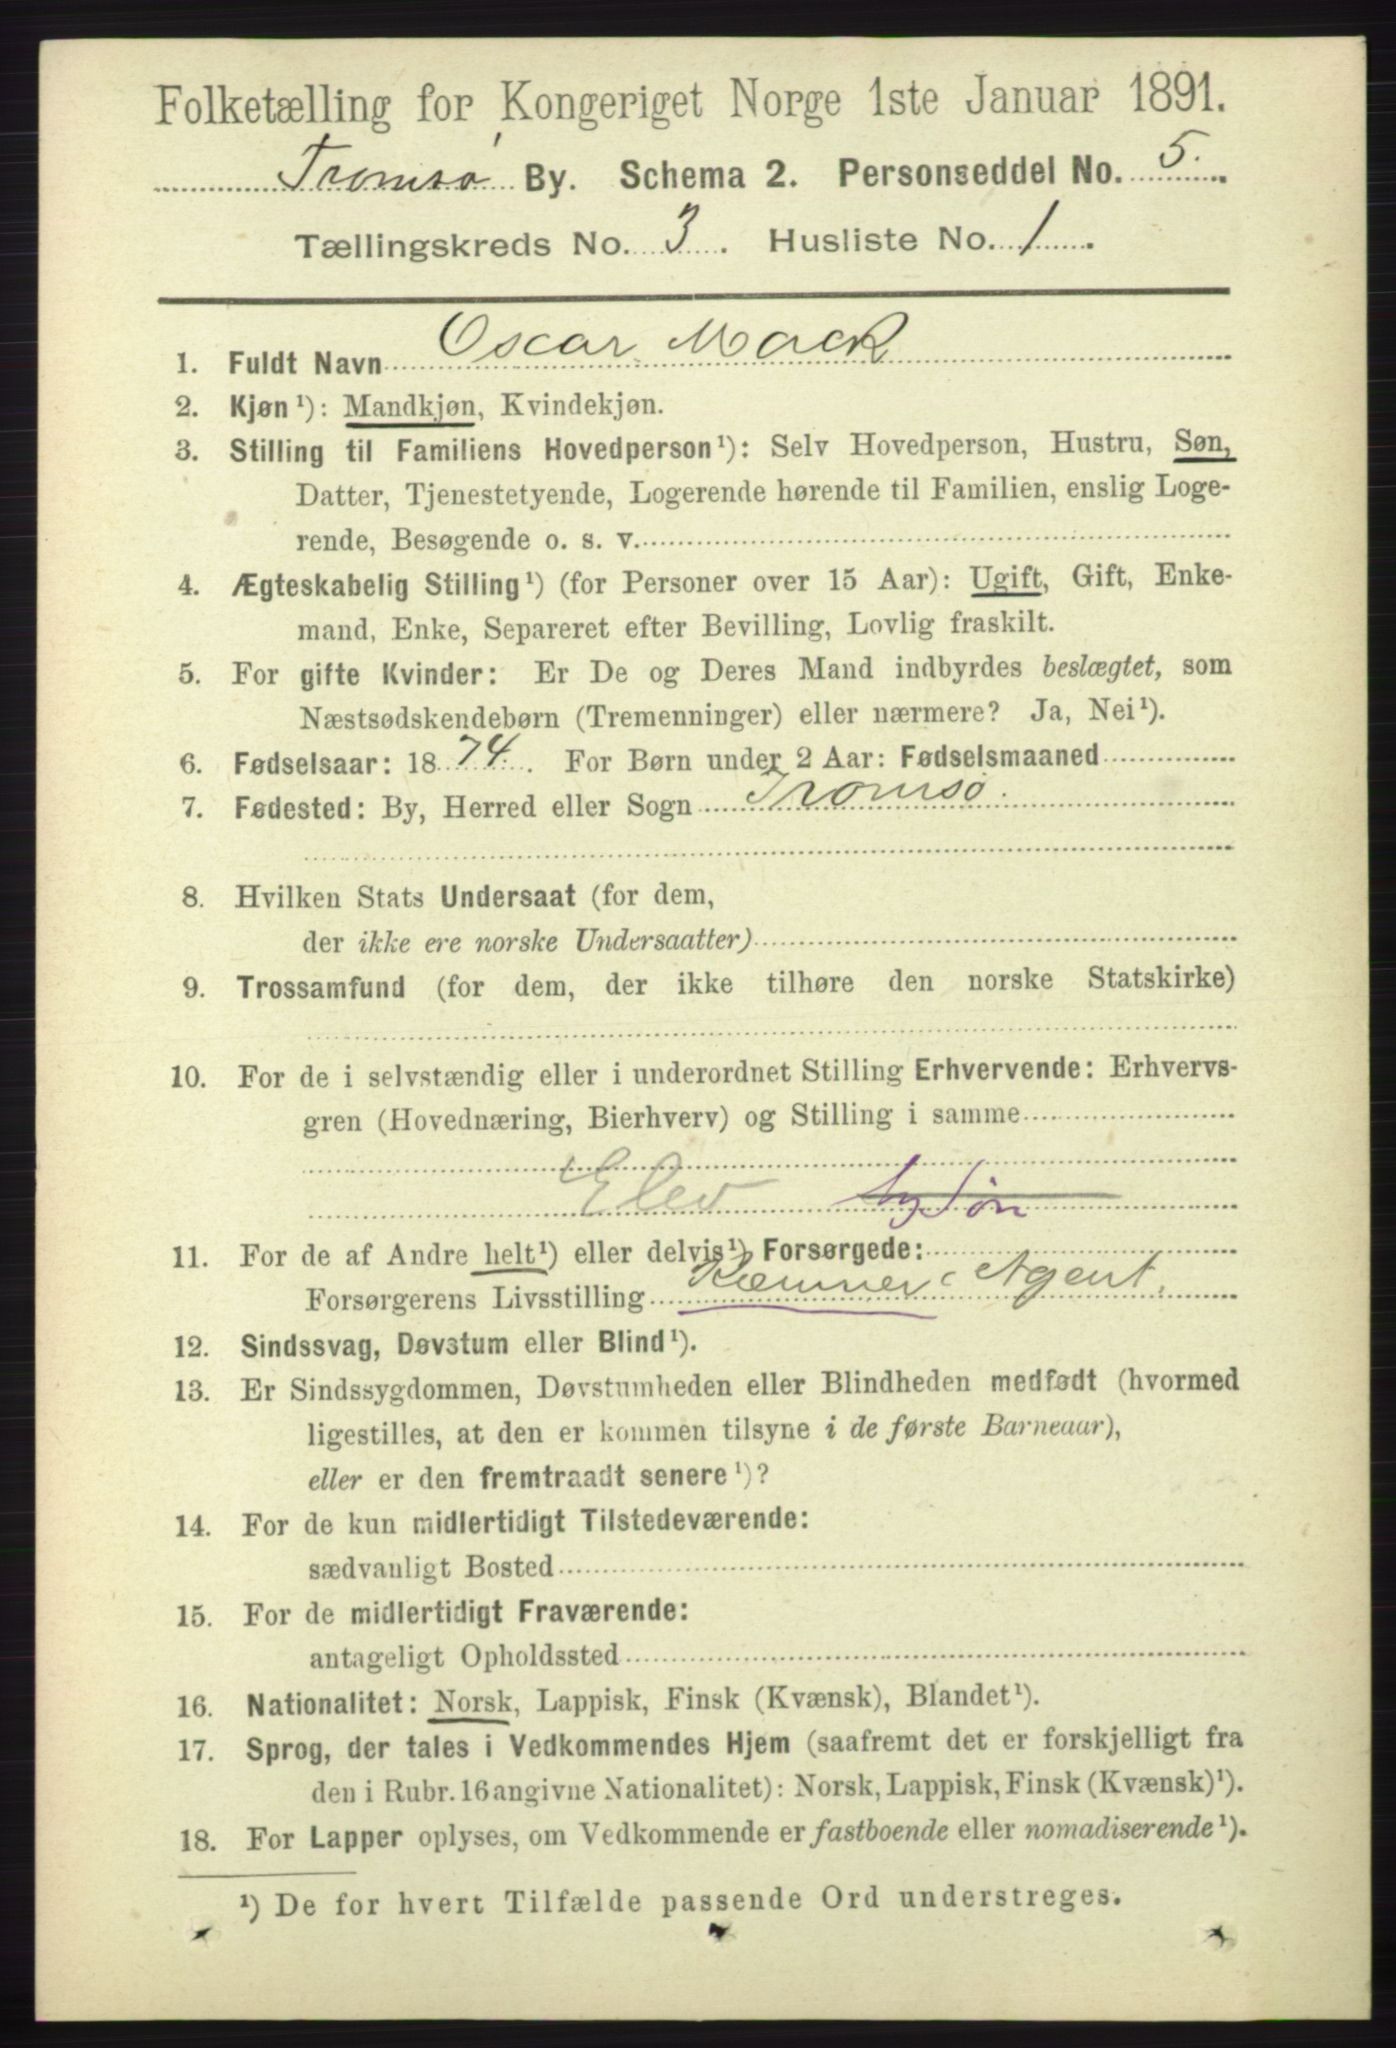 Folketælling for Kongeriget Norge 1ste Januar 1891.
Tromsø By. Schema 2. Personseddel No. 5.
Tællingskreds No. 3. Husliste No. 1.
1. Fuldt Navn Oscar Mack
2. Kjøn¹): Mandkjøn, Kvindekjøn.
3. Stilling til Familiens Hovedperson¹): Selv Hovedperson, Hustru, Søn,
Datter, Tjenestetyende, Logerende hørende til Familien, enslig Loge-
rende, Besøgende o. s. v.
4. Ægteskabelig Stilling¹) (for Personer over 15 Aar): Ugift, Gift, Enke-
mand, Enke, Separeret efter Bevilling, Lovlig fraskilt.
5. For gifte Kvinder: Er De og Deres Mand indbyrdes beslægtet, som
Næstsødskendebørn (Tremenninger) eller nærmere? Ja, Nei¹).
6. Fødselsaar: 1874. For Børn under 2 Aar: Fødselsmaaned
7. Fødested: By, Herred eller Sogn Tromsø.
8. Hvilken Stats Undersaat (for dem,
der ikke ere norske Undersaatter)
9. Trossamfund (for dem, der ikke tilhøre den norske Statskirke)
10. For de i selvstændig eller i underordnet Stilling Erhvervende: Erhvervs-
gren (Hovednæring, Bierhverv) og Stilling i samme
Elev Søn
11. For de af Andre helt¹) eller delvis¹) Forsørgede:
Forsørgerens Livsstilling Kæmner, Agent.
12. Sindssvag, Døvstum eller Blind¹).
13. Er Sindssygdommen, Døvstumheden eller Blindheden medfødt (hvormed
ligestilles, at den er kommen tilsyne i de første Barneaar),
eller er den fremtraadt senere¹)?
14. For de kun midlertidigt Tilstedeværende:
sædvanligt Bosted
15. For de midlertidigt Fraværende:
antageligt Opholdssted
16. Nationalitet: Norsk, Lappisk, Finsk (Kvænsk), Blandet¹).
17. Sprog, der tales i Vedkommendes Hjem (saafremt det er forskjelligt fra
den i Rubr. 16 angivne Nationalitet): Norsk, Lappisk, Finsk (Kvænsk)¹).
18. For Lapper oplyses, om Vedkommende er fastboende eller nomadiserende¹).
¹) De for hvert Tilfælde passende Ord understreges.